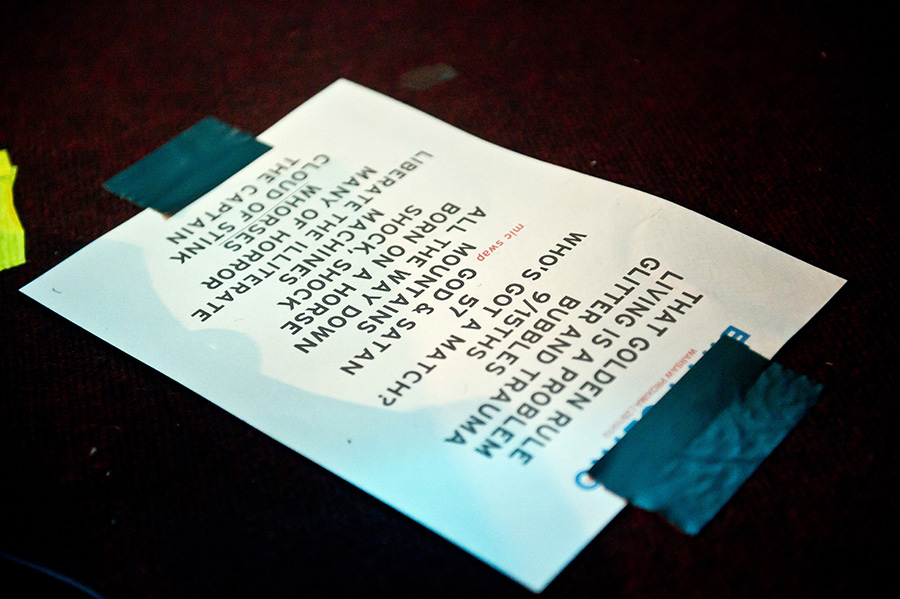 WARSAW PROXIMA
THAT GOLDEN RULE
LIVING IS A PROBLEM
GLITTER AND TRAUMA
BUBBLES
9/15THS
WHO'S GOT A MATCH?
57
mic swap GOD & SATAN
MOUNTAINS
ALL THE WAY DOWN
BORN ON A HORSE
SHOCK SHOCK
MACHINES
LIBERATE THE ILLITERATE
MANY OF HORROR
WHORSES
CLOUD OF STINK
THE CAPTAIN